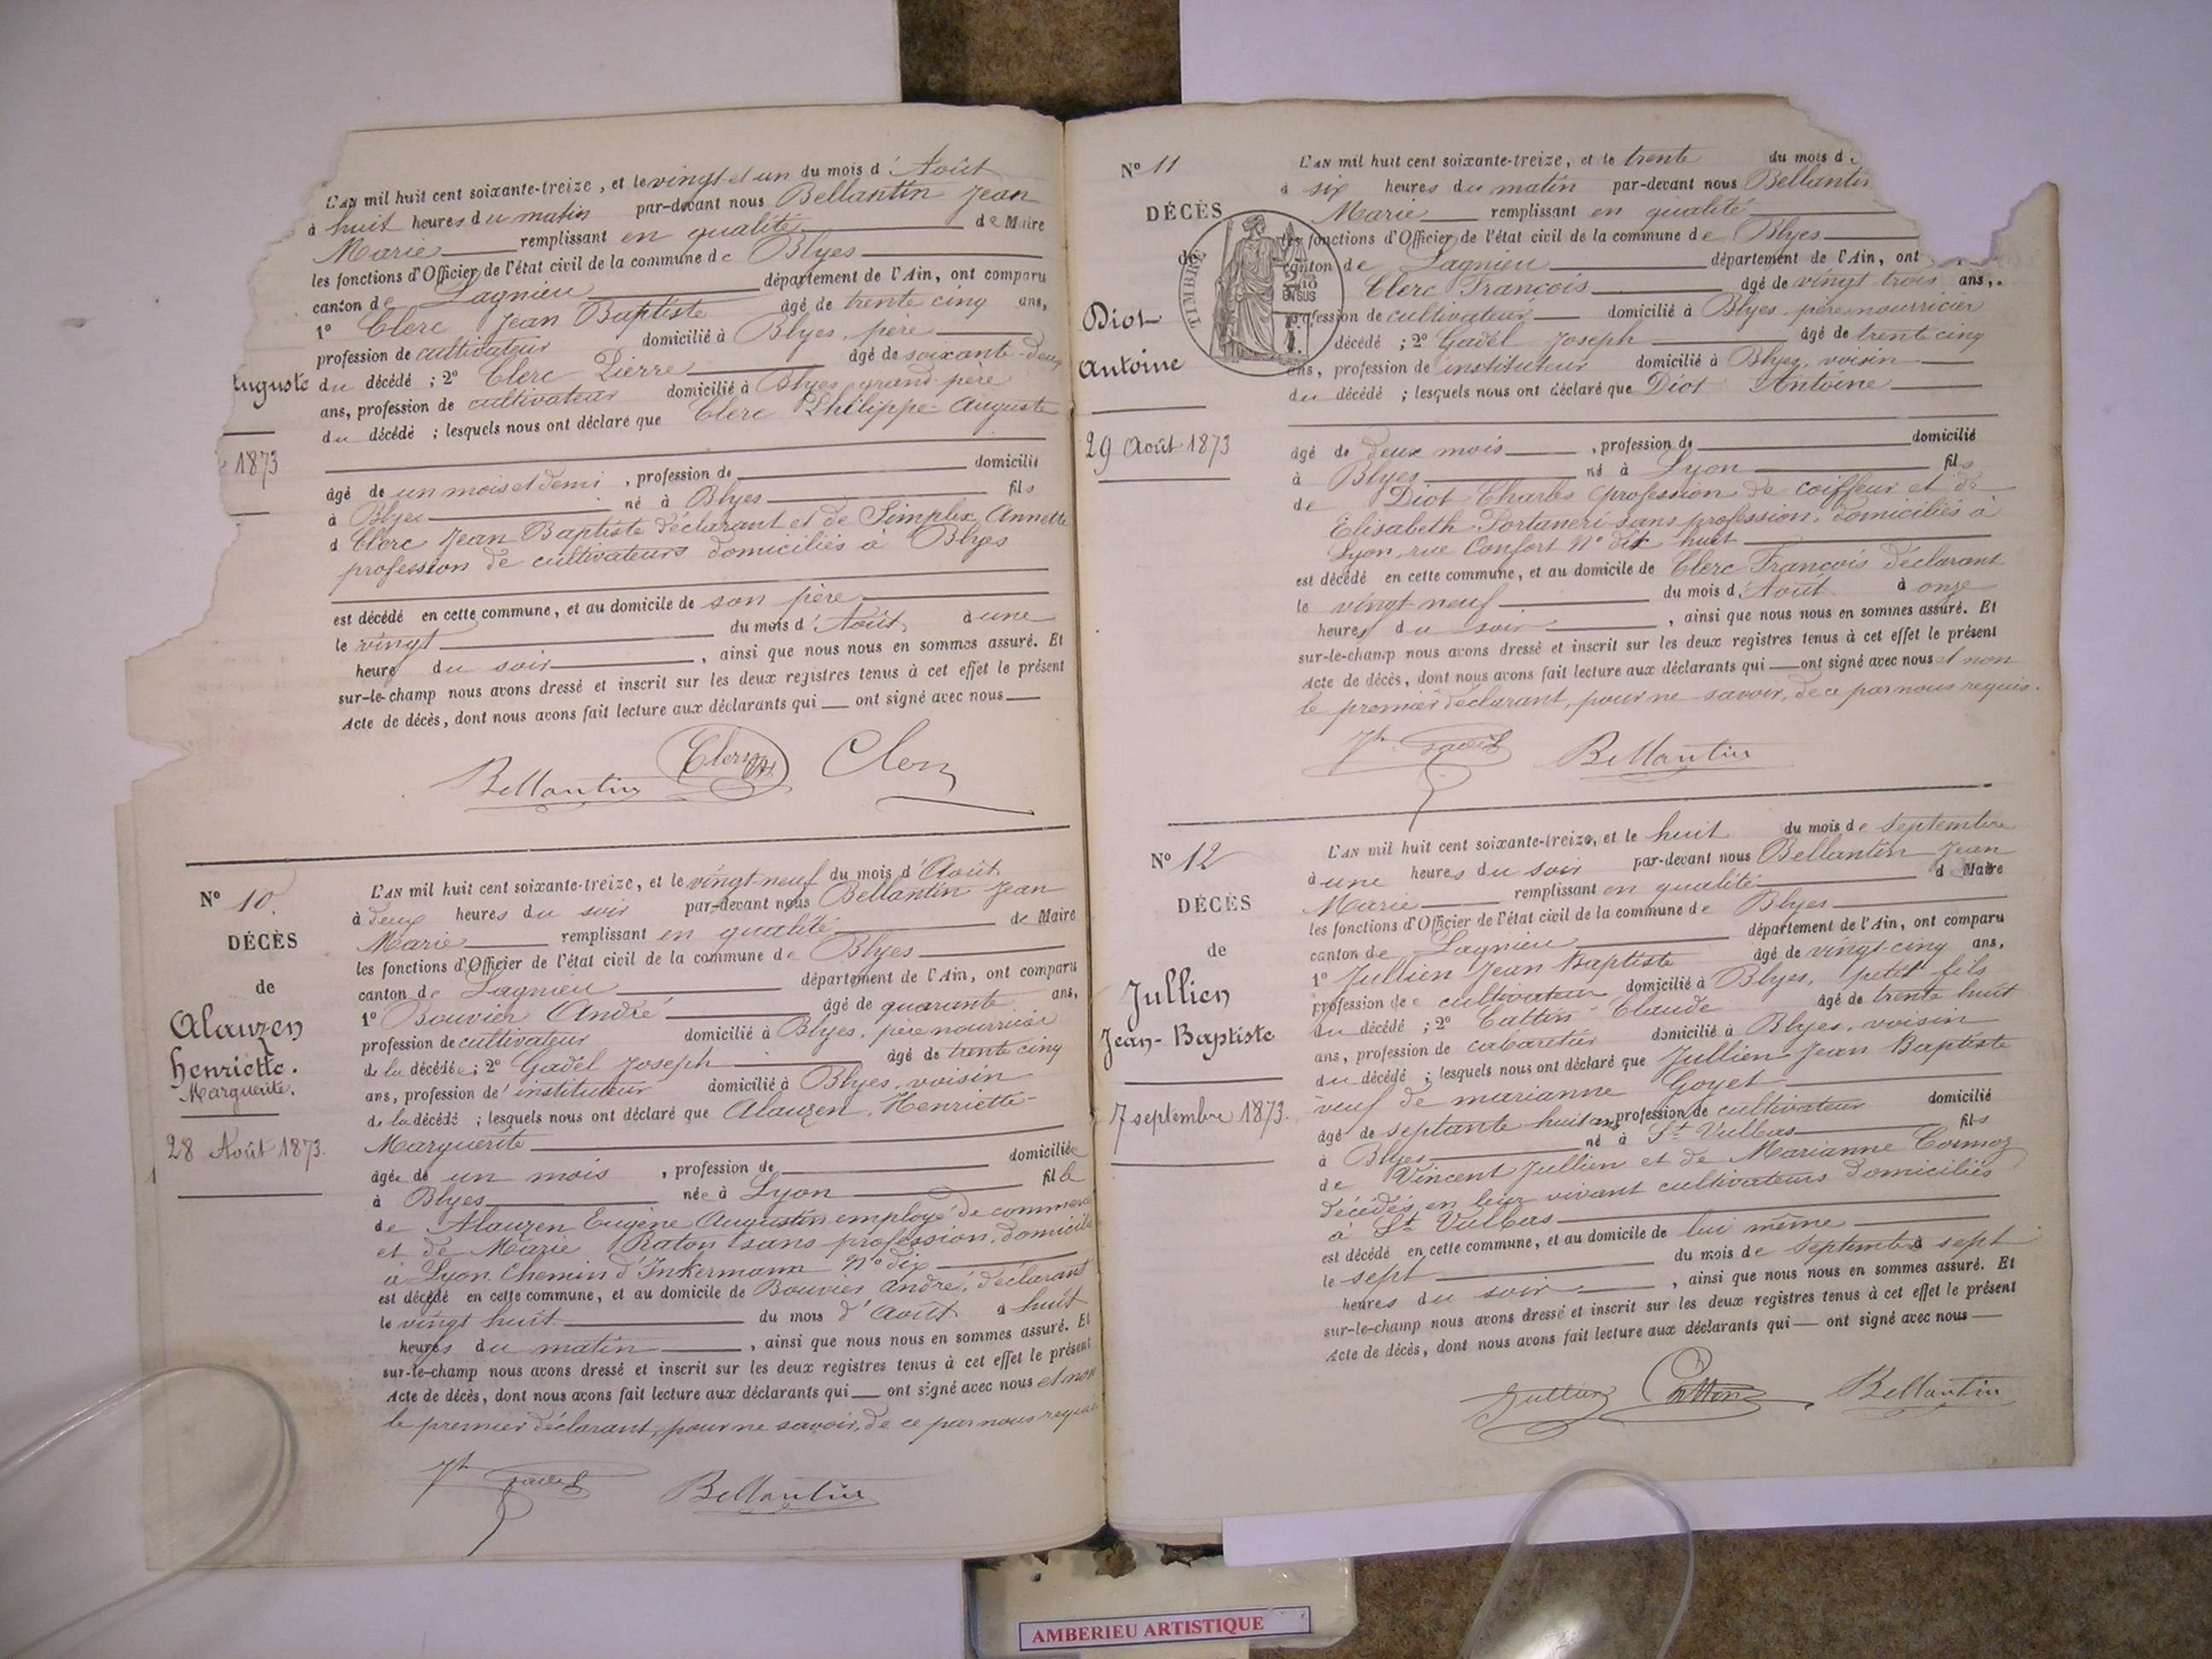 L'AN mil huit cent soixante-treize, et le vingt et un du mois d'Août
à huit heures du matin par-devant nous Bellantin Jean
Marie remplissant en qualité de Maire
les fonctions d'Officier de l'état civil de la commune de Blyes
canton de Lagnieu département de l'Ain, ont comparu
1º Clerc Jean Baptiste âgé de trente cinq ans,
profession de cultivateur domicilié à Blyes, père
du décédé ; 2º Clerc Pierre âgé de soixante-deux
ans, profession de cultivateur domicilié à Blyes grand-père
du décédé ; lesquels nous ont déclaré que Clerc Philippe-Auguste
âgé de un mois et demi, profession de domicilié
à Blyes né à Blyes fils
d Clerc Jean Baptiste déclarant et de Simplex Annette
profession de cultivateurs domiciliés à Blyes
est décédé en cette commune, et au domicile de son père
le vingt du mois d'Août, à une
heure du soir, ainsi que nous nous en sommes assuré. Et
sur-le-champ nous avons dressé et inscrit sur les deux registres tenus à cet effet le présent
Acte de décès, dont nous avons fait lecture aux déclarants qui ont signé avec nous
Auguste
1873
Bellantin Clerc Clerc
Nº 10.
DÉCÈS
de
Alauzen
henriette.
Marguerite.
28 Août 1873.
L'AN mil huit cent soixante-treize, et le vingt-neuf du mois d'Août
à deux heures du soir par-devant nous Bellantin Jean
Marie remplissant en qualité de Maire
les fonctions d'Officier de l'état civil de la commune de Blyes
canton de Lagnieu département de l'Ain, ont comparu
1º Bouvier André âgé de quarante ans,
profession de cultivateur domicilié à Blyes, père nourricier
de la décédée ; 2º Gadel Joseph âgé de trente cinq
ans, profession d'instituteur domicilié à Blyes, voisin
de la décédé ; lesquels nous ont déclaré que Alauzen, Henriette-
Marguerite
âgée de un mois, profession de domiciliée
à Blyes née à Lyon fille
de Alauzen Eugène Augustin employé de commerce
et de Marie Raton sans profession, domicilié
à Lyon Chemin d'Inkermann Nº dix
est décédé en cette commune, et au domicile de Bouvier andré, déclarant
le vingt huit du mois d'Août à huit
heures du matin, ainsi que nous nous en sommes assuré. Et
sur-le-champ nous avons dressé et inscrit sur les deux registres tenus à cet effet le présent
Acte de décès, dont nous avons fait lecture aux déclarants qui ont signé avec nous et non
le premier déclarant, pour ne savoir, de ce par nous requis
Jh Gadel Bellantin
Nº 11
DÉCÈS
de
Diot
Antoine
29 Août 1873
TIMBRE
EN SUS
L'AN mil huit cent soixante-treize, et le trente du mois d
à six heures du matin par-devant nous Bellantin
Marie remplissant en qualité
les fonctions d'Officier de l'état civil de la commune de Blyes
canton de Lagnieu département de l'Ain, ont
Clerc François âgé de vingt trois ans,
profession de cultivateur domicilié à Blyes père nourricier
décédé ; 2º Gadel Joseph âgé de trente cinq
ans, profession de instituteur domicilié à Blyes, voisin
du décédé ; lesquels nous ont déclaré que Diot Antoine
âgé de deux mois, profession de domicilié
à Blyes né à Lyon fils
de Diot Charles profession de coiffeur et de
Elisabeth Portaneri sans profession, domiciliés à
Lyon, rue Confort Nº dix huit
est décédé en cette commune, et au domicile de Clerc François déclarant
le vingt-neuf du mois d'Août à onze
heures du soir, ainsi que nous nous en sommes assuré. Et
sur-le-champ nous avons dressé et inscrit sur les deux registres tenus à cet effet le présent
Acte de décès, dont nous avons fait lecture aux déclarants qui ont signé avec nous et non
le premier déclarant, pour ne savoir, de ce par nous requis.
Jh Gadel Bellantin
Nº 12
DÉCÈS
de
Jullien
Jean-Baptiste
7 septembre 1873.
L'AN mil huit cent soixante-treize, et le huit du mois de Septembre
à une heures du soir par-devant nous Bellantin Jean
Marie remplissant en qualité d Maire
les fonctions d'Officier de l'état civil de la commune de Blyes
canton de Lagnieu département de l'Ain, ont comparu
1º Jullien Jean Baptiste âgé de vingt-cinq ans,
profession de cultivateur domicilié à Blyes, petit fils
du décédé ; 2º Cattin Claude âgé de trente huit
ans, profession de cabaretier domicilié à Blyes, voisin
du décédé ; lesquels nous ont déclaré que Jullien Jean Baptiste
veuf de marianne Goyet
âgé de septante huit ans, profession de cultivateur domicilié
à Blyes né à St Vulbas fils
de Vincent Jullien et de Marianne Cormoz
décédés en leur vivant cultivateurs domiciliés
à St Vulbas
est décédé en cette commune, et au domicile de lui même
le sept du mois de Septembre à sept
heures du soir, ainsi que nous nous en sommes assuré. Et
sur-le-champ nous avons dressé et inscrit sur les deux registres tenus à cet effet le présent
Acte de décès, dont nous avons fait lecture aux déclarants qui ont signé avec nous
Jullien Cattin Bellantin
AMBERIEU ARTISTIQUE